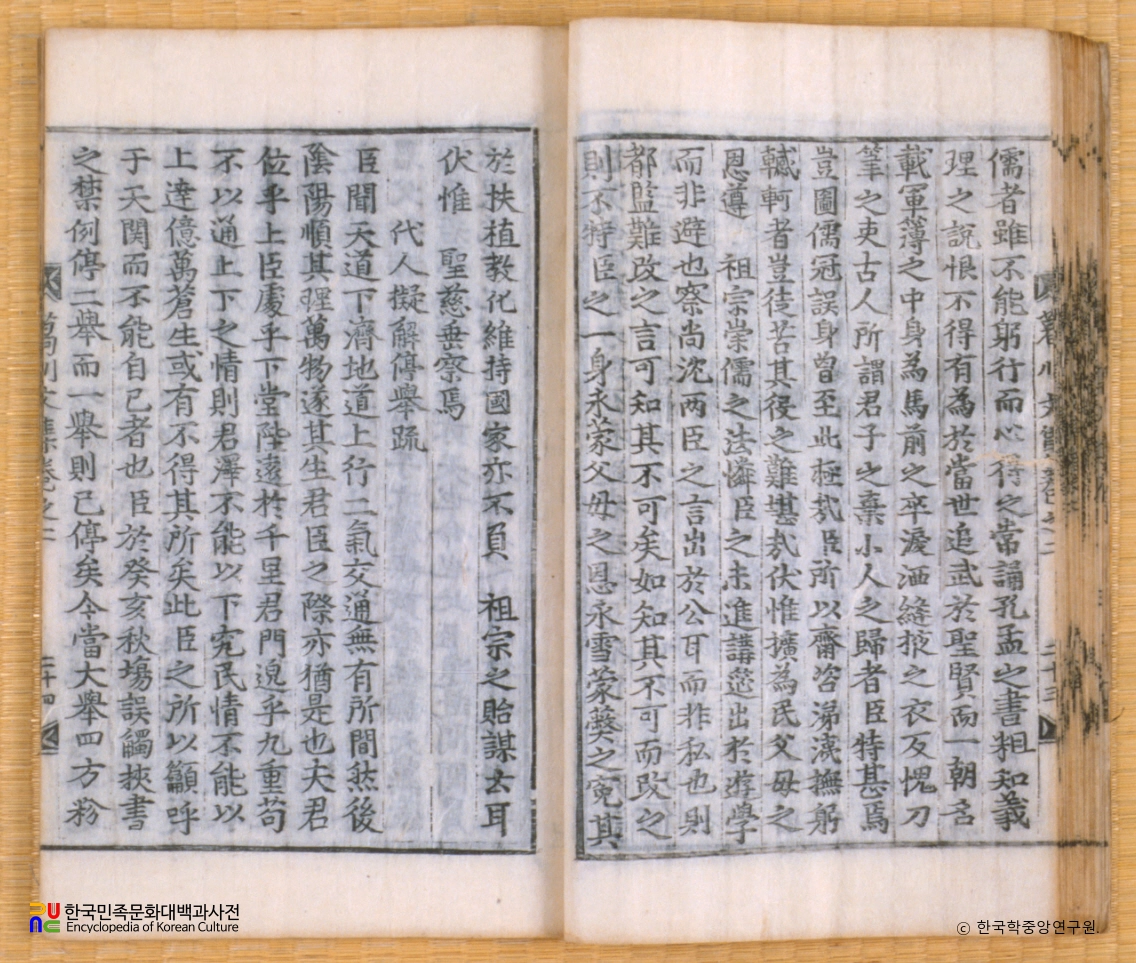 儒者雖不能躬行而心得之常誦孔孟之書粗知義
理之說恨不得有為於當世追武於聖賢而一朝名
載軍簿之中身為馬前之卒浸洒縫掖之衣反愧刀
筆之吏古人所謂君子之棄小人之歸者臣特甚焉
豈圖儒冠誤身曾至此極哉臣所以齎咨涕洟撫躬
轗軻者豈徒苦其役之難堪哉伏惟擴為民父母之
恩遵 祖宗崇儒之法憐臣之未進講筵出於遊學
而非避也察尚沈两臣之言出於公耳而非私也則
都監難改之言可知其不可矣如知其不可而改之
則不特臣之一身永蒙父母之恩永雪蒙弊之寃其
於扶植教化維持國家亦不負 祖宗之貽謀云耳
伏惟 聖慈垂察焉
代人擬解停舉疏
臣聞天道下濟地道上行二氣交通無有所間然後
陰陽順其理萬物遂其生君臣之際亦猶是也夫君
位乎上臣處乎下堂陛遠於千里君門邃乎九重苟
不以通上下之情則君澤不能以下究民情不能以
上達億萬蒼生或有不得其所矣此臣之所以籲呼
于天閽而不能自已者也臣於癸亥秋場誤觸挾書
之禁例停二舉而一舉則已停矣今當大舉四方粉
文集卷之二
二十四
二十三
한국민족문화대백과사전
Encyclopedia of Korean Culture
© 한국학중앙연구원.